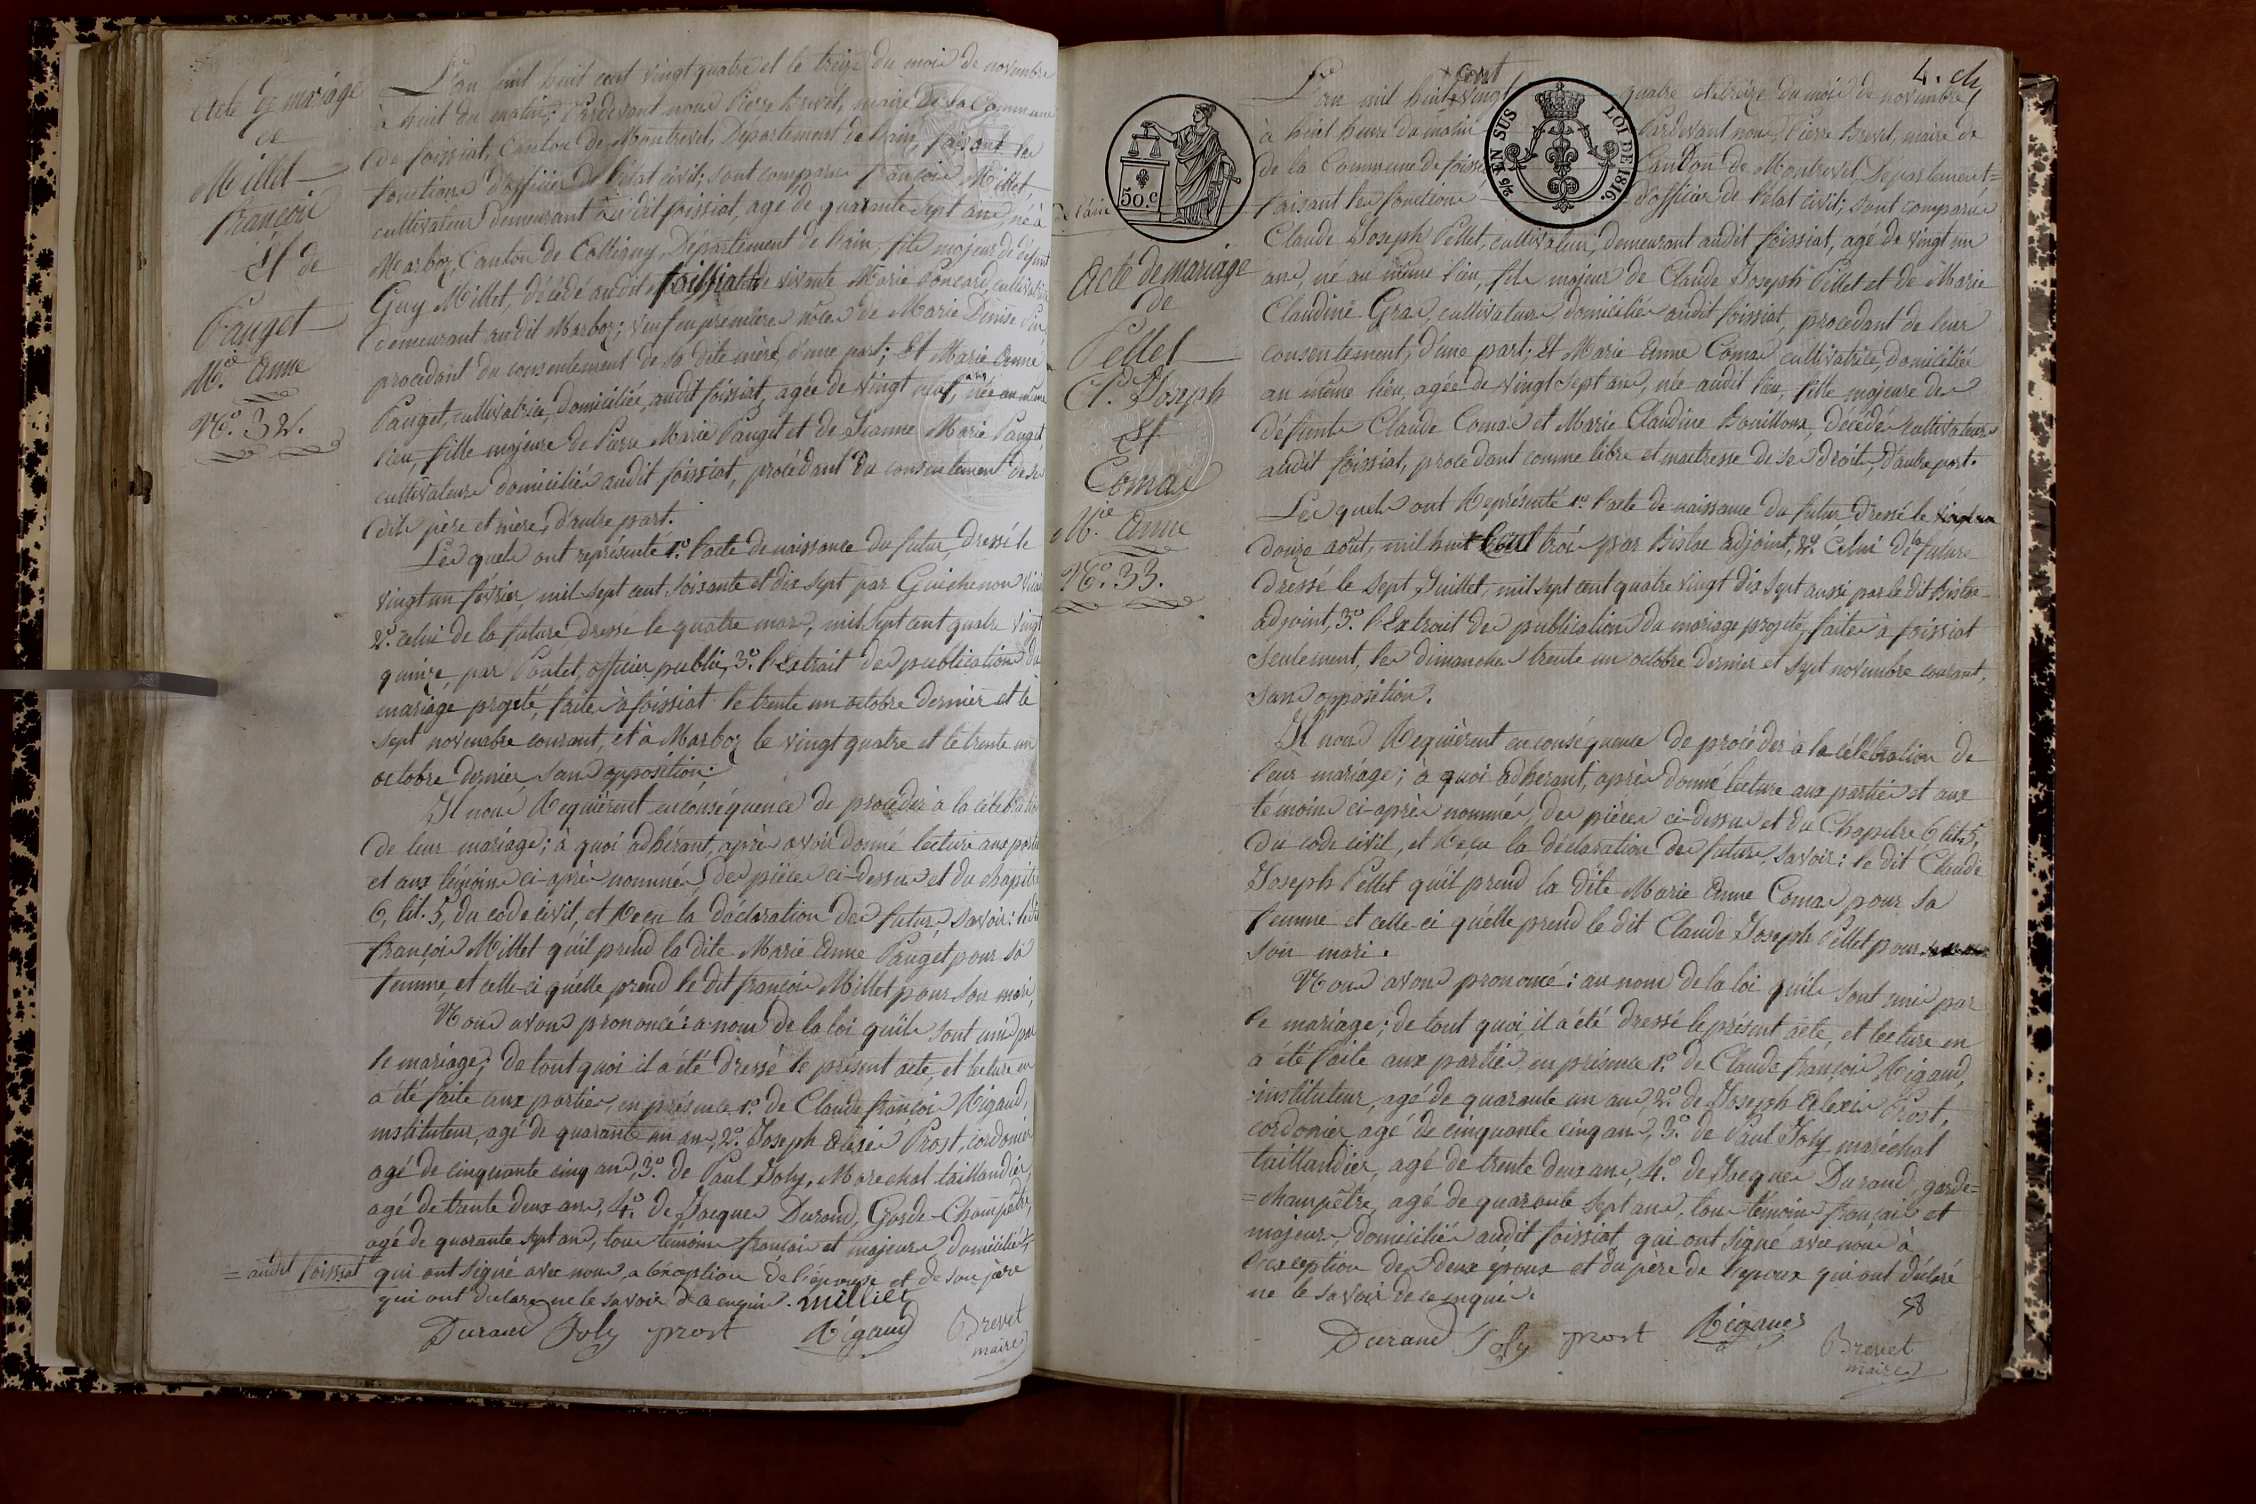 Acte de mariage
de
Millet
françois
Et de
Pauget
M.ie Anne
N.o 32.
L'an mil huit cent vingt quatre et le treize du mois de novembre
à huit du matin; Pardevant nous Pierre Brevet, maire de la Commune
de foissiat, Canton de Montrevel, Département de l'ain, faisant les
fonctions d'officier de l'état civil; sont comparus françois Millet
cultivateur demeurant au dit foissiat, agé de quarante sept ans, né à
Marboz, Canton de Colligny, Département de l'ain, fils majeur de défunt
Guy Millet, décédé audit foissiat et de vivante Marie Poncard, cultivatrice
demeurant audit Marboz; veuf en premières nôces de Marie Denise
procedant du consentement de sa dite mère, d'une part; Et Marie Anne
Pauget, cultivatrice, domiciliée audit foissiat, agée de vingt neuf ans, née au même
lieu, fille majeure de Pierre Marie Pauget et de Jeanne Marie Pauget
cultivateurs domiciliés audit foissiat, procédant du consentement de ses
dits père et mère, d'autre part.
Les quels ont représenté 1.o l'acte de naissance du futur, dressé le
vingt un février, mil sept cent soixante et dix sept par Guichenon
2.o celui de la future dressé le quatre mars, mil sept cent quatre vingt
quinze, par Poulet, officier public, 3.o l'Extrait des publications du
mariage projeté, faites à foissiat le trente un octobre dernier et le
sept novembre courant, et à Marboz le vingt quatre et le trente un
octobre dernier sans opposition;
Et nous Requièrent en conséquence de procéder à la célébration
de leur mariage; à quoi adhérant, après avoir donné lecture aux parties
et aux témoins ci-après nommés, des pièces ci-dessus et du chapitre
6, tit. 5, du code civil, et Reçu la déclaration des futurs, savoir: le dit
françois Millet qu'il prend la dite Marie Anne Pauget pour sa
femme, et celle-ci qu'elle prend le dit françois Millet pour son mari,
Nous avons prononcé: a nom de la loi qu'ils sont unis par
le mariage; de tout quoi il a été dressé le présent acte, et lecture en
a été faite aux parties, en présence 1.o de Claude françois Rigaud,
instituteur, agé de quarante un ans, 2.o Joseph Alexis Prost, cordonier
agé de cinquante cinq ans, 3.o de Paul Joly, Marechal taillandier,
agé de trente deux ans, 4.o de Jacques Durand, Garde-Champêtre,
agé de quarante sept ans, tous témoins français et majeurs, domiciliés
= audit foissiat qui ont signé avec nous, a l'éxception de l'épouse et de son père
qui ont déclaré ne le savoir de ce enquis. Milliet
Durand Joly prost Rigaud Brevet
maire
4. ch
50. c.
EN SUS
LOI DE 1816.
de l'ain
Acte de mariage
de
Pellet
Cl.de Joseph
Et
Comas
M.ie Anne
N.o 33.
L'an mil huit cent vingt quatre et le treize du mois de novembre,
à huit heures du matin Pardevant nous, Pierre Brevet, maire de
de la Commune de foissiat Canton de Montrevel, Département=
faisant les fonctions d'officier de l'état civil; sont comparus
Claude Joseph Pellet, cultivateur, demeurant audit foissiat, agé de vingt un
ans, né au même lieu, fils majeur de Claude Joseph Pellet et de Marie
Claudine Gras, cultivateurs domiciliés audit foissiat, procédant de leur
consentement, d'une part; Et Marie Anne Comas cultivatrice, domiciliée
au même lieu, agée de vingt sept ans, née audit lieu, fille majeure des
défunts Claude Comas et Marie Claudine Bouilloux, décédés cultivateurs
audit foissiat, procedant comme libre et maitresse de ses droits, d'autre part.
Les quels ont Représenté 1.o l'acte de naissance du futur, dressé le
douze août, mil huit Cent trois par Bislae adjoint, 2.o celui de la future
dressé le sept Juillet, mil sept cent quatre vingt dix sept aussi par le dit Bislae
adjoint, 3.o l'Extrait des publications du mariage projeté, faites à foissiat
seulement, les dimanches trente un octobre dernier et sept novembre courant,
sans opposition.
Et nous Requièrent en conséquence de procéder à la célébration de
leur mariage; à quoi adherant, après donné lecture aux parties et aux
témoins ci-après nommés, des pièces ci-dessus et du Chapitre 6 tit. 5,
du code civil, et Reçu la déclaration des futurs, savoir: le dit Claude
Joseph Pellet qu'il prend la dite Marie Anne Comas pour sa
femme et celle-ci qu'elle prend le dit Claude Joseph Pellet pour
son mari.
Nous avons prononcé: au nom de la loi qu'ils sont unis par
le mariage; de tout quoi, il a été dressé le présent acte, et lecture en
a été faite aux parties, en présence 1.o de Claude françois Rigaud,
instituteur, agé de quarante un ans, 2.o de Joseph Alexis Prost,
cordonier, agé de cinquante cinq ans, 3.o de Paul Joly, maréchal
taillandier, agé de trente deux ans, 4.o de Jacques Durand, garde=
=champêtre, agé de quarante sept ans, tous témoins français et
majeurs, domiciliés audit foissiat, qui ont signé avec nous à
l'exception des deux époux et du père de l'époux qui ont déclaré
ne le savoir de ce enquis.
Durand Joly prost Rigaud
Brevet
maire